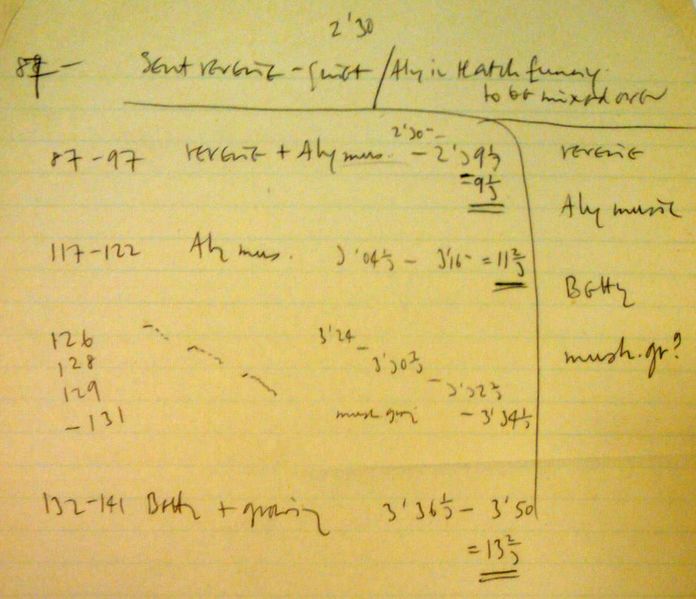 2'30
87 - Sent reverie - quiet / Aly in Hatch funny
to be mixed over
87-97 reverie + Aly mus. 2'30 - 2'39⅓ reverie
= 9⅓
Aly music
117-122 Aly mus. 3'04⅓ - 3'16 = 11⅔
Betty
126 3'24
128 - 3'30⅔ mush. gr?
129 - 3'32⅔
- 131 mush grow - 3'34⅓
132-141 Betty + growing 3'36⅓ - 3'50
= 13⅔